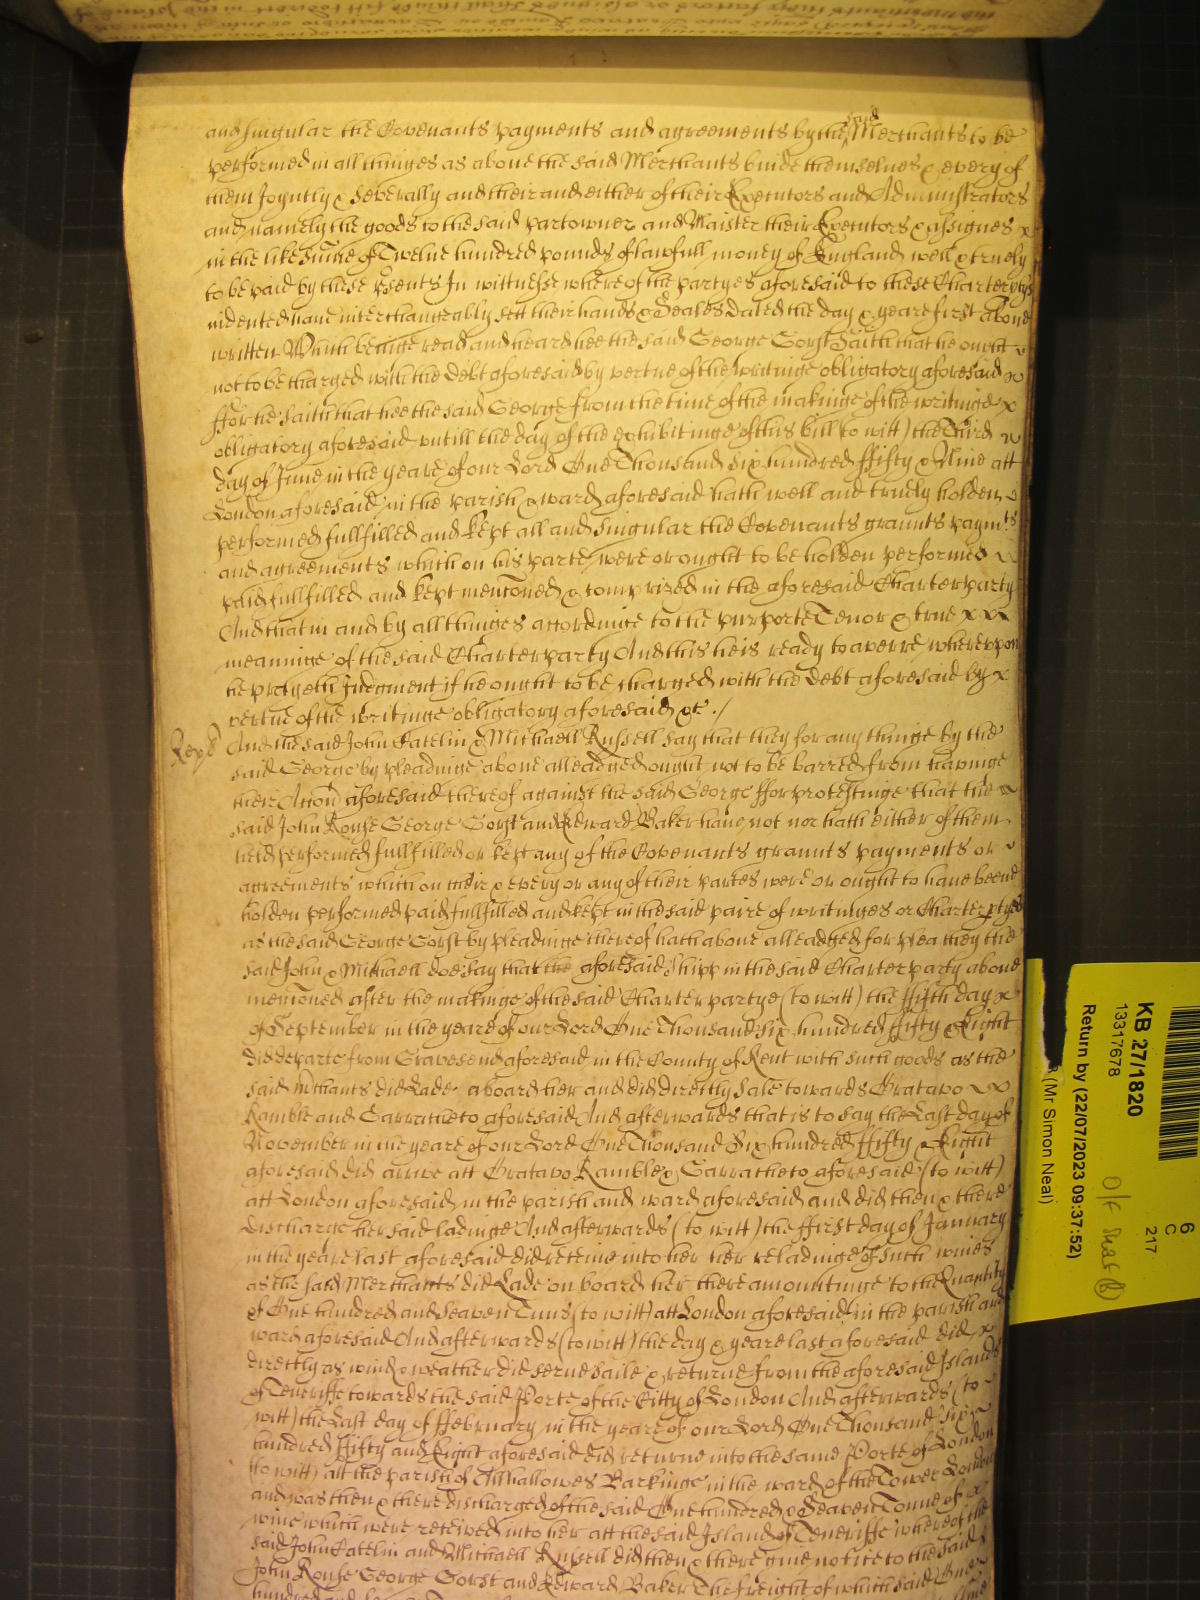 and singular the Covenants payments and agreements by the said Merchants to be
performed in all thinges as above the said Merchants binde themselves & every of
them Joyntly & Severally and their and either of their Executors and Administrators
and namely the goods to the said partowner and Maister their Executors & assignes x
in the like Summe of Twelve hundred pounds of lawfull money of England well & truely
to be paid by these psents In wittnesse whereof the partyes aforesaid to these Charterptys
indented have interchangeably sett their hands & Seales Dated the day & yeare first above
written Which beinge read and heard hee the said George Gorst Saith that he ought
not to be charged with the Debt aforesaid by vertue of the writinge obligatory aforesaid
ffor he Saith that hee the said George from the time of the makinge of the writinge x
obligatory aforesaid untill the day of the exhibitinge of this bill (to witt) the Third
day of June in the yeare of our Lord One Thousand six hundred ffifty & Nine att
London aforesaid in the parish & ward aforesaid hath well and truely holden
performed fullfilled and kept all and singular the Covenants graunts paymts
and agreements which on his parte were or ought to be holden performed
paid fullfilled and kept mencioned & comprized in the aforesaid Charterparty
And that in and by all thinges accordinge to the purporte Tenor & true x x x
meaninge of the said Charterparty And this he is ready to averre whereupon
he prayeth Judgment if he ought to be charged with the Debt aforesaid by x
vertue of the writinge obligatory aforesaid &c ./
And the said John Catelin & Michaell Russell say that they for any thinge by the
said George by pleadinge above alleadged ought not to be barred from havinge
their Accon aforesaid thereof against the said George ffor protestinge that the
said John Rouse George Gorst and Edward Baker have not nor hath either of them
held performed fullfilled or kept any of the Covenants graunts payments or
agreements which on their & every or any of their partes were or ought to have beene
holden performed paid fullfilled and kept in the said paire of writinges or Charterptyes
as the said George Gorst by pleadinge thereof hath above alleadged for plea they the
said John & Michaell doe say that the aforesaid Shipp in the said Charterparty above
mencioned after the makinge of the said Charterpartye (to witt) the ffifth day x
of September in the yeare of our Lord One Thousand six hundred ffifty & Eight
did departe from Gravesend aforesaid in the County of Kent with such goods as the
said mchants did Lade aboard her and did directly Saile towards Oratavo
Ramble and Garratheto aforesaid And afterwards that is to say the Last day of
November in the yeare of our Lord One Thousand Six hundred ffifty & Eight
aforesaid did arrive att Oratavo Ramble & Garratheto aforesaid (to witt)
att London aforesaid in the parish and ward aforesaid and did then & there
discharge her said ladinge And afterwards (to witt) the ffirst day of January
in the yeare last aforesaid did receive into her her reladinge of such wines
as the said Merchants did Lade on board her there amountinge to the Quantity
of One hundred and Seaven Tuns (to witt) att London aforesaid in the parish and
ward aforesaid And afterwards (to witt) the day & yeare last aforesaid did x
directly as wind & weather did serve saile & returne from the aforesaid Islands
of Teneriffe towards the said Porte of the Citty of London And afterwards (to
witt) the Last day of ffebruary in the yeare of our Lord One Thousand six
hundred ffifty and Eight aforesaid did returne into the same Porte of London
(to witt) att the parish of Allhallowes Barkinge in the ward of the Tower London
and was then & there discharged of the said One hundred & Seaven Tonne of
wine which were received into her att the said Island of Teneriffe whereof the
said John Catelin and Michaell Russell did then & there give notice to the said
John Rouse George Gorst and Edward Baker The freight of which said One
KB 27/1820
13317678
Return by (22/07/2023 09:37:52)
(Mr Simon Neal)
6
C
217